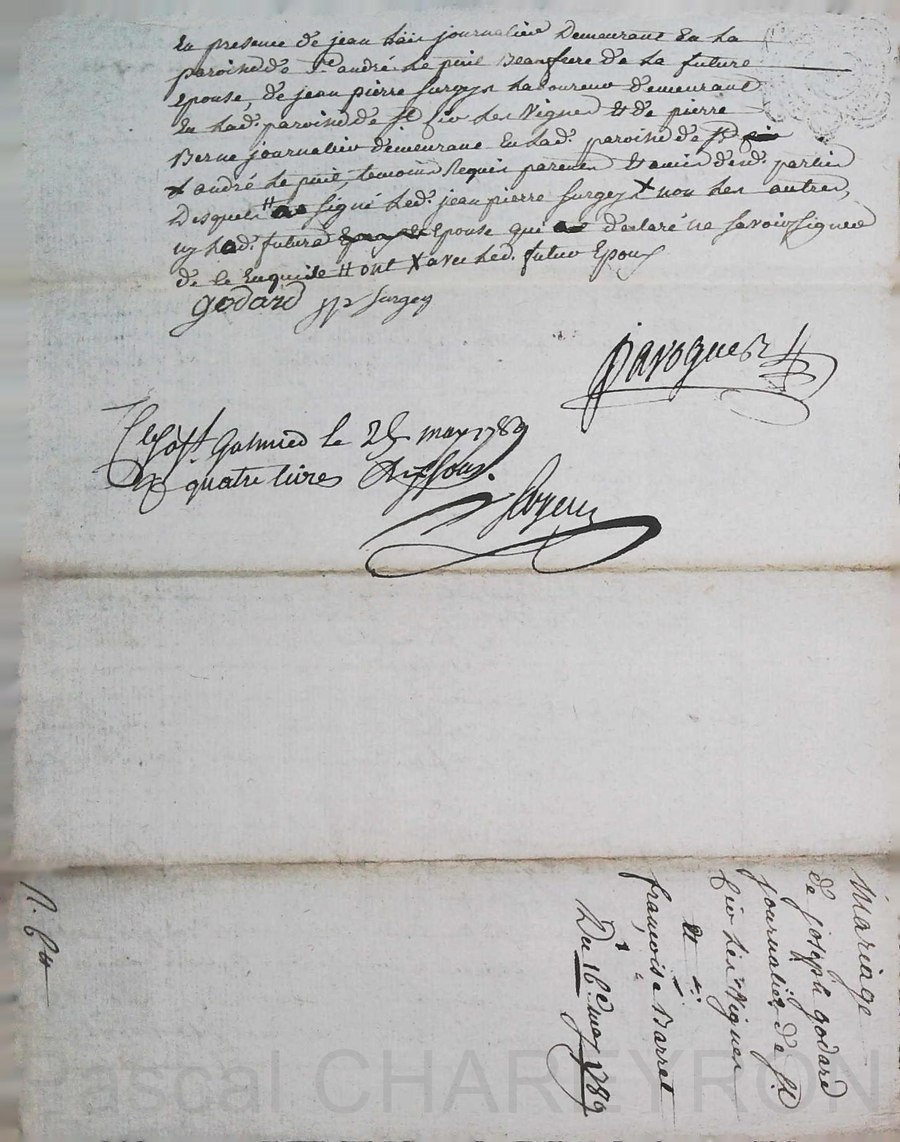 En presence de jean journalier Demeurant En la
paroisse de St andré le puil Beaufrere de la future
Epouse, de jean pierre Surgey Laboureur demeurant
En lad. paroisse de St Cir les Vignes & de pierre
Berne journalier demeurant En lad. paroisse de St
X andré le puil, temoins Requis parens & amis desd. parties
Desquels # signé led. jean pierre Surgey X non les autres,
ny lad. future Epouse qui declaré ne savoir signer
de ce Enquise # ont X avec led. futur Epoux
godard jp Surgey
parogue
Galmier le 25 may 1789
quatre livres dix sous.
Mariage
de joseph godard
journalier de St
Cir les Vignes
&
françoise Barret
Du 16e may 1789